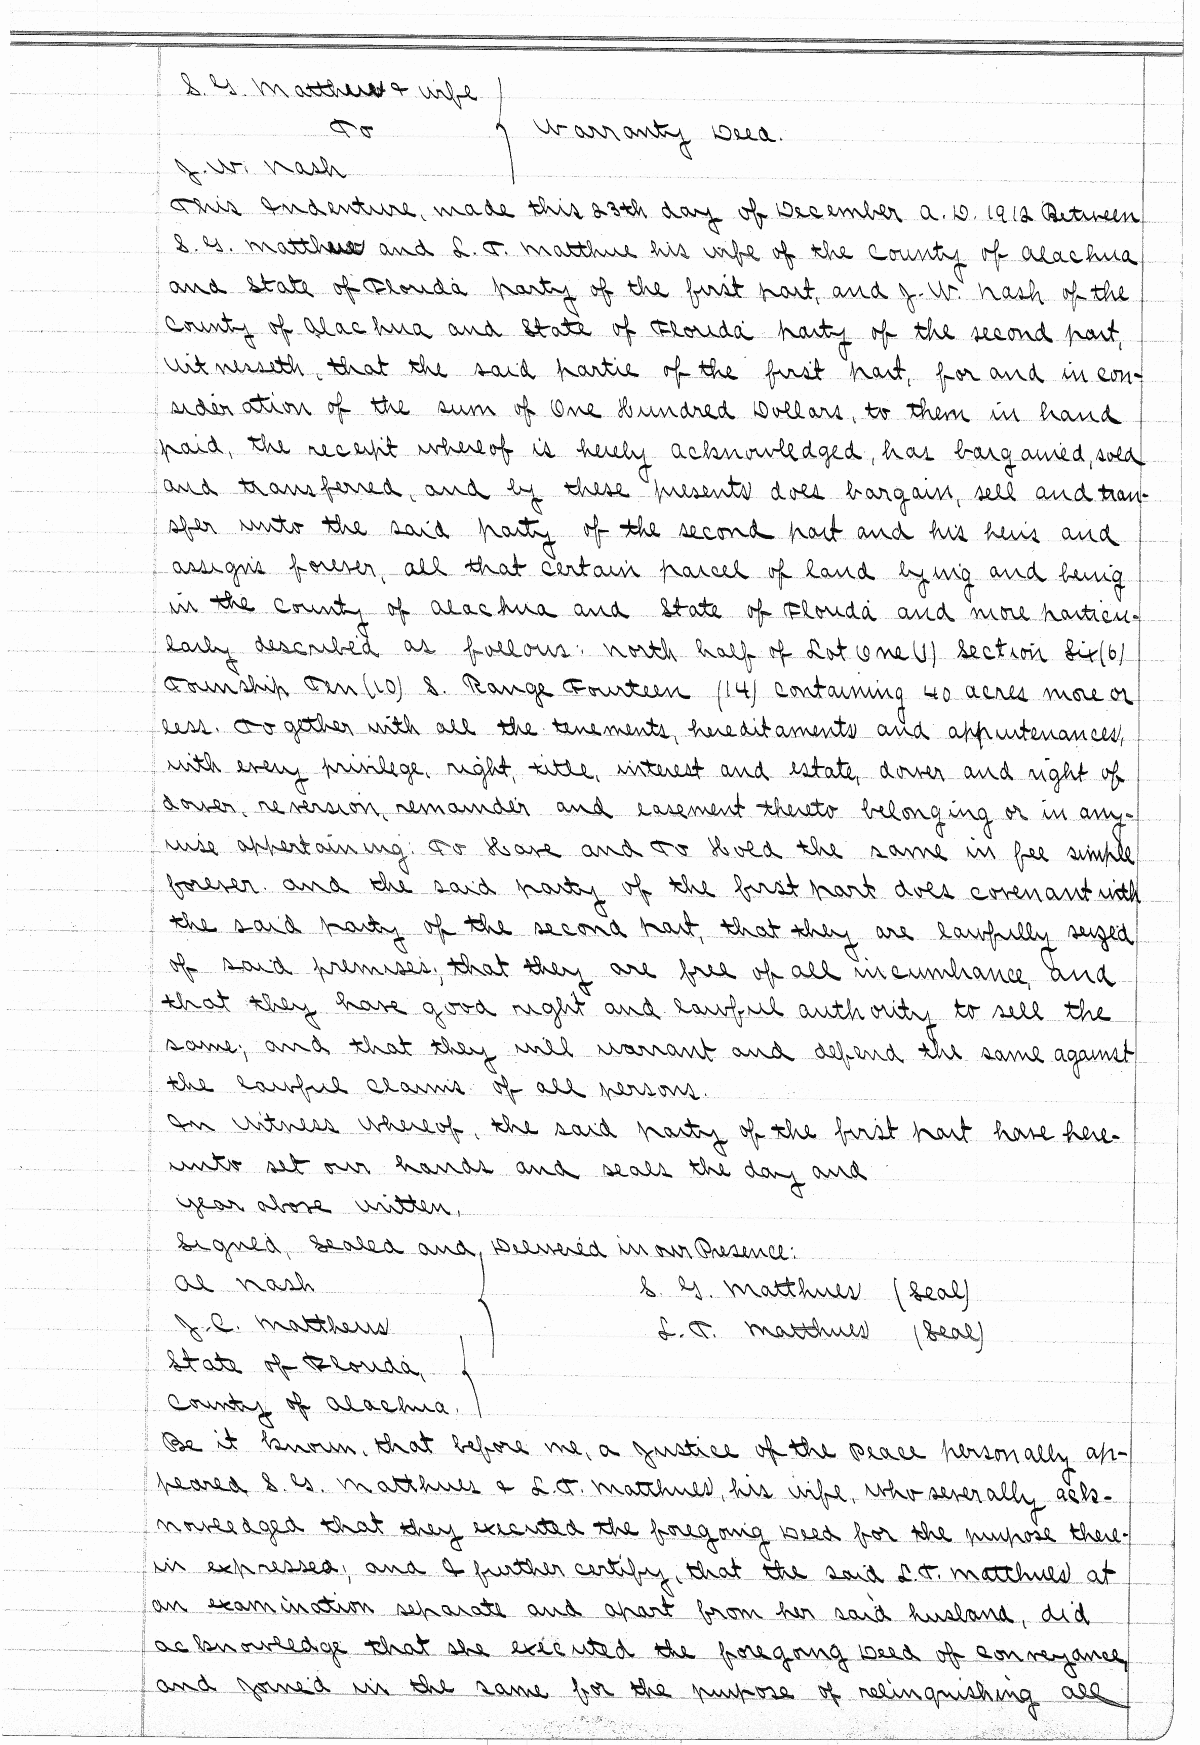 S. G. Matthews & wife
To
Warranty Deed.
J. W. Nash
This Indenture, made this 23th day of December A. D. 1912 Between
S. G. Matthews and L. T. Matthue his wife of the County of Alachua
and State of Florida party of the first part, and J. W. Nash of the
County of Alachua and State of Florida party of the second part,
Witnesseth, that the said partie of the first part, for and in con-
sideration of the sum of One Hundred Dollars, to them in hand
paid, the receipt whereof is herely acknowledged, has bargained, sold
and transferred, and by these presents does bargain, sell and tran-
sfer unto the said party of the second part and his heirs and
assigns forever, all that certain parcel of land lying and being
in the County of Alachua and State of Florida and more particu-
larly described as follows: North half of Lot One (1) Section Six (6)
Township Ten (10) S. Range Fourteen (14) containing 40 acres more or
less. Together with all the tenements, hereditaments and appurtenances,
with every privilege, right, title, interest and estate, dower and right of
dower, reversion, remainder and easement thereto belonging or in any-
wise appertaining: To Have and To Hold the same in fee simple
forever. And the said party of the first part does covenant with
the said party of the second part, that they are lawfully seized
of said premises; that they are free of all incumbrance, and
that they have good right and lawful authority to sell the
same; and that they will warrant and defend the same against
the lawful claims of all persons.
In Witness Whereof, the said party of the first part have here-
unto set our hands and seals the day and
year above written.
Signed, Sealed and Delivered in our Presence:
Al Nash
S. G. Matthues (Seal)
J. C. Mattheus
L. T. Matthues (Seal)
State of Florida,
County of Alachua.
Be it known, that before me, a Justice of the Peace personally ap-
peared S. G. Matthues & L. T. Matthues, his wife, who severally ack-
nowledged that they executed the foregoing Deed for the purpose there-
in expressed; and I further certify, that the said L. T. Matthues at
an examination separate and apart from her said husband, did
acknowledge that she executed the foregoing Deed of Conveyance,
and joined in the same for the purpose of relinquishing all